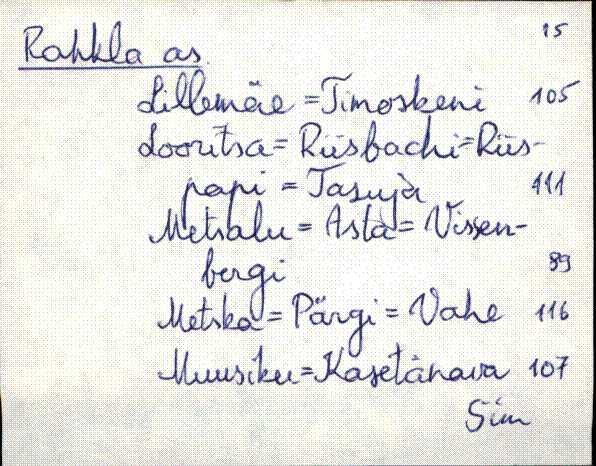 15
Rahkla as.
Lillemäe = Timoskeni 105
Looritsa = Riisbachi = Riis-
papi = Tasuja 111
Metsalu = Asta = Vissen-
bergi 89
Metska = Pärgi = Vahe 116
Muusiku = Kasetänava 107
Sim